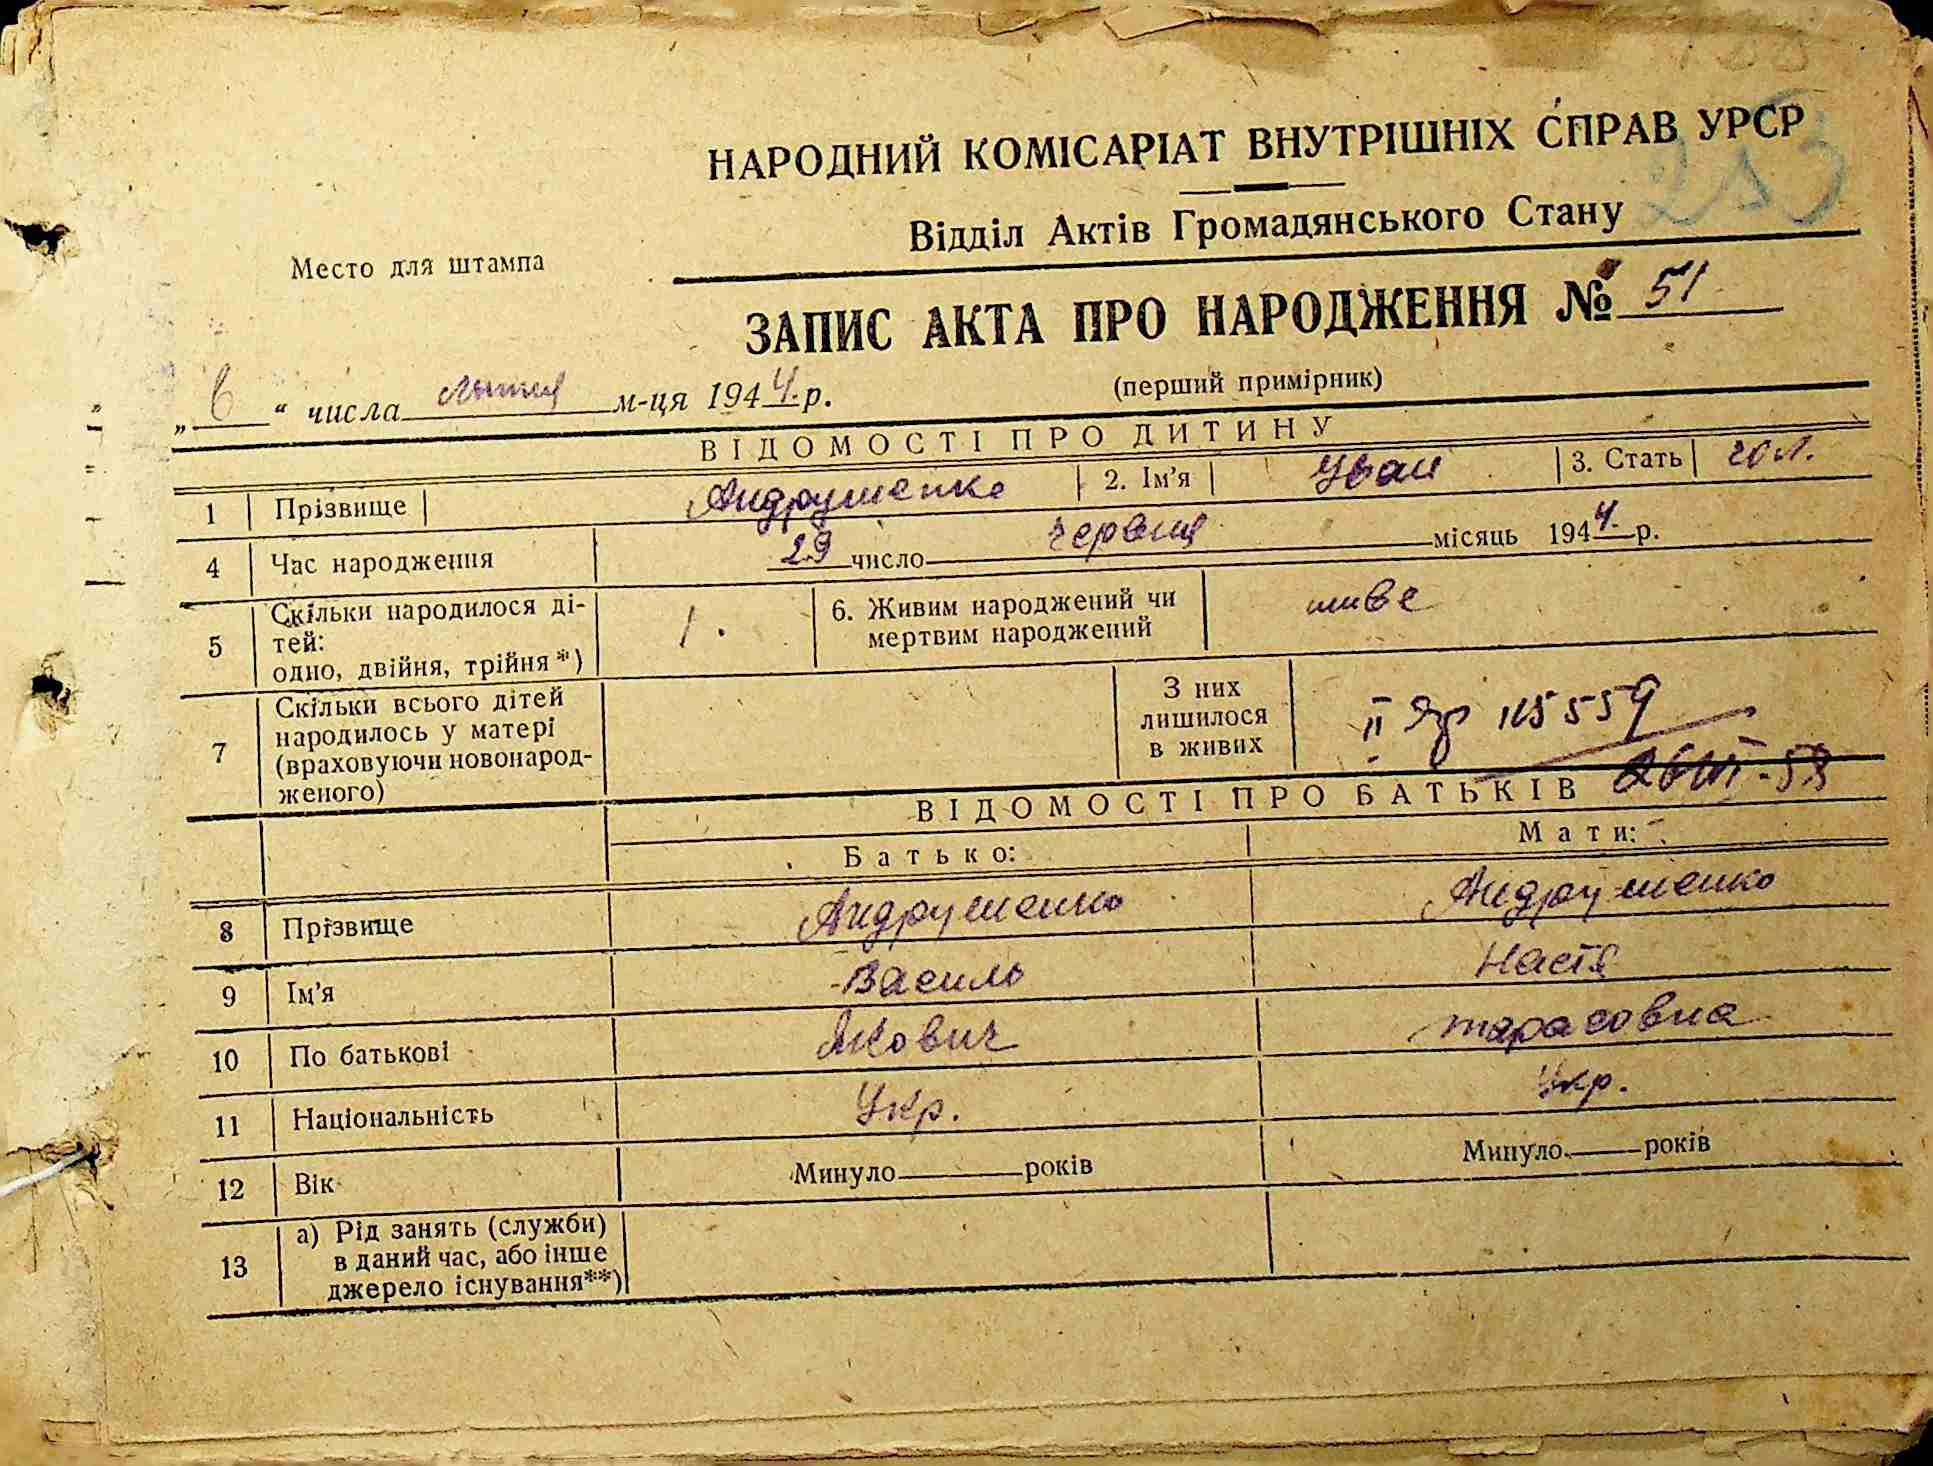 НАРОДНИЙ КОМІСАРІАТ ВНУТРІШНІХ СПРАВ УРСР
253
Відділ Актів Громадянського Стану
Место для штампа
ЗАПИС АКТА ПРО НАРОДЖЕННЯ № 51
(перший примірник)
„ 6 “ числа липня м-ця 1944 р.
ВІДОМОСТІ ПРО ДИТИНУ
1 Прізвище Андрушенко 2. Ім'я Иван 3. Стать чол.
4 Час народження 29 число червня місяць 1944 р.
5 Скільки народилося ді-
тей:
одно, двійня, трійня*) 1. 6. Живим народжений чи
мертвим народжений живе
7 Скільки всього дітей
народилось у матері
(враховуючи новонарод-
женого)
З них
лишилося
в живих
II 115559
ВІДОМОСТІ ПРО БАТЬКІВ
Батько: Мати:
8 Прізвище Андрушенко Андрушенко
9 Ім'я Василь Настя
10 По батькові Якович Тарасовна
11 Національність Укр. Укр.
12 Вік Минуло____років Минуло____років
13 а) Рід занять (служби)
в даний час, або інше
джерело існування**)